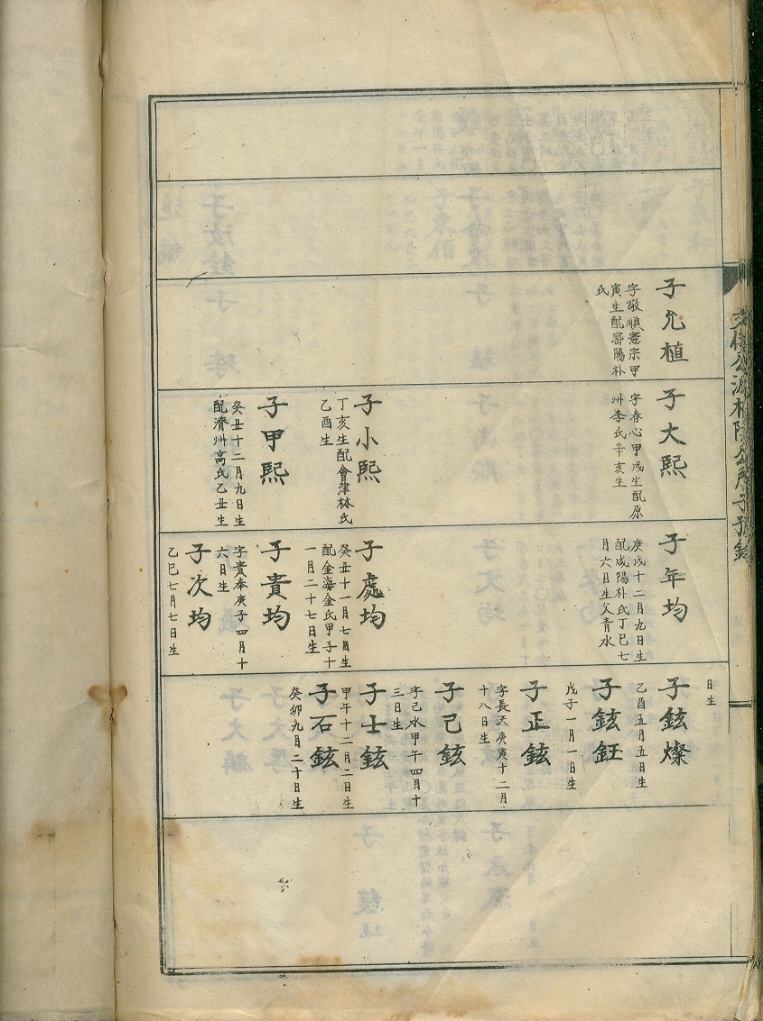 子允植
字敬順憲宗甲
寅生配密陽朴
氏
子大熙
字春心甲戌生配原
州李氏辛亥生
子小熙
丁亥生配會津林氏
乙酉生
子甲熙
癸丑十二月九日生
配濟州高氏乙丑生
子年均
庚戌十二月九日生
配咸陽朴氏丁巳七
月六日生父青水
子處均
癸丑十一月七日生
配金海金氏甲子十
一月二十七日生
子貴均
字貴奉庚子四月十
六日生
子次均
乙巳七月七日生
日生
子鉉燦
乙酉五月五日生
子鉉鈺
戊子一月一日生
子正鉉
字長天庚寅十二月
十八日生
子己鉉
字己水甲午四月十
三日生
子士鉉
甲午十二月二日生
子石鉉
癸卯九月二十日生